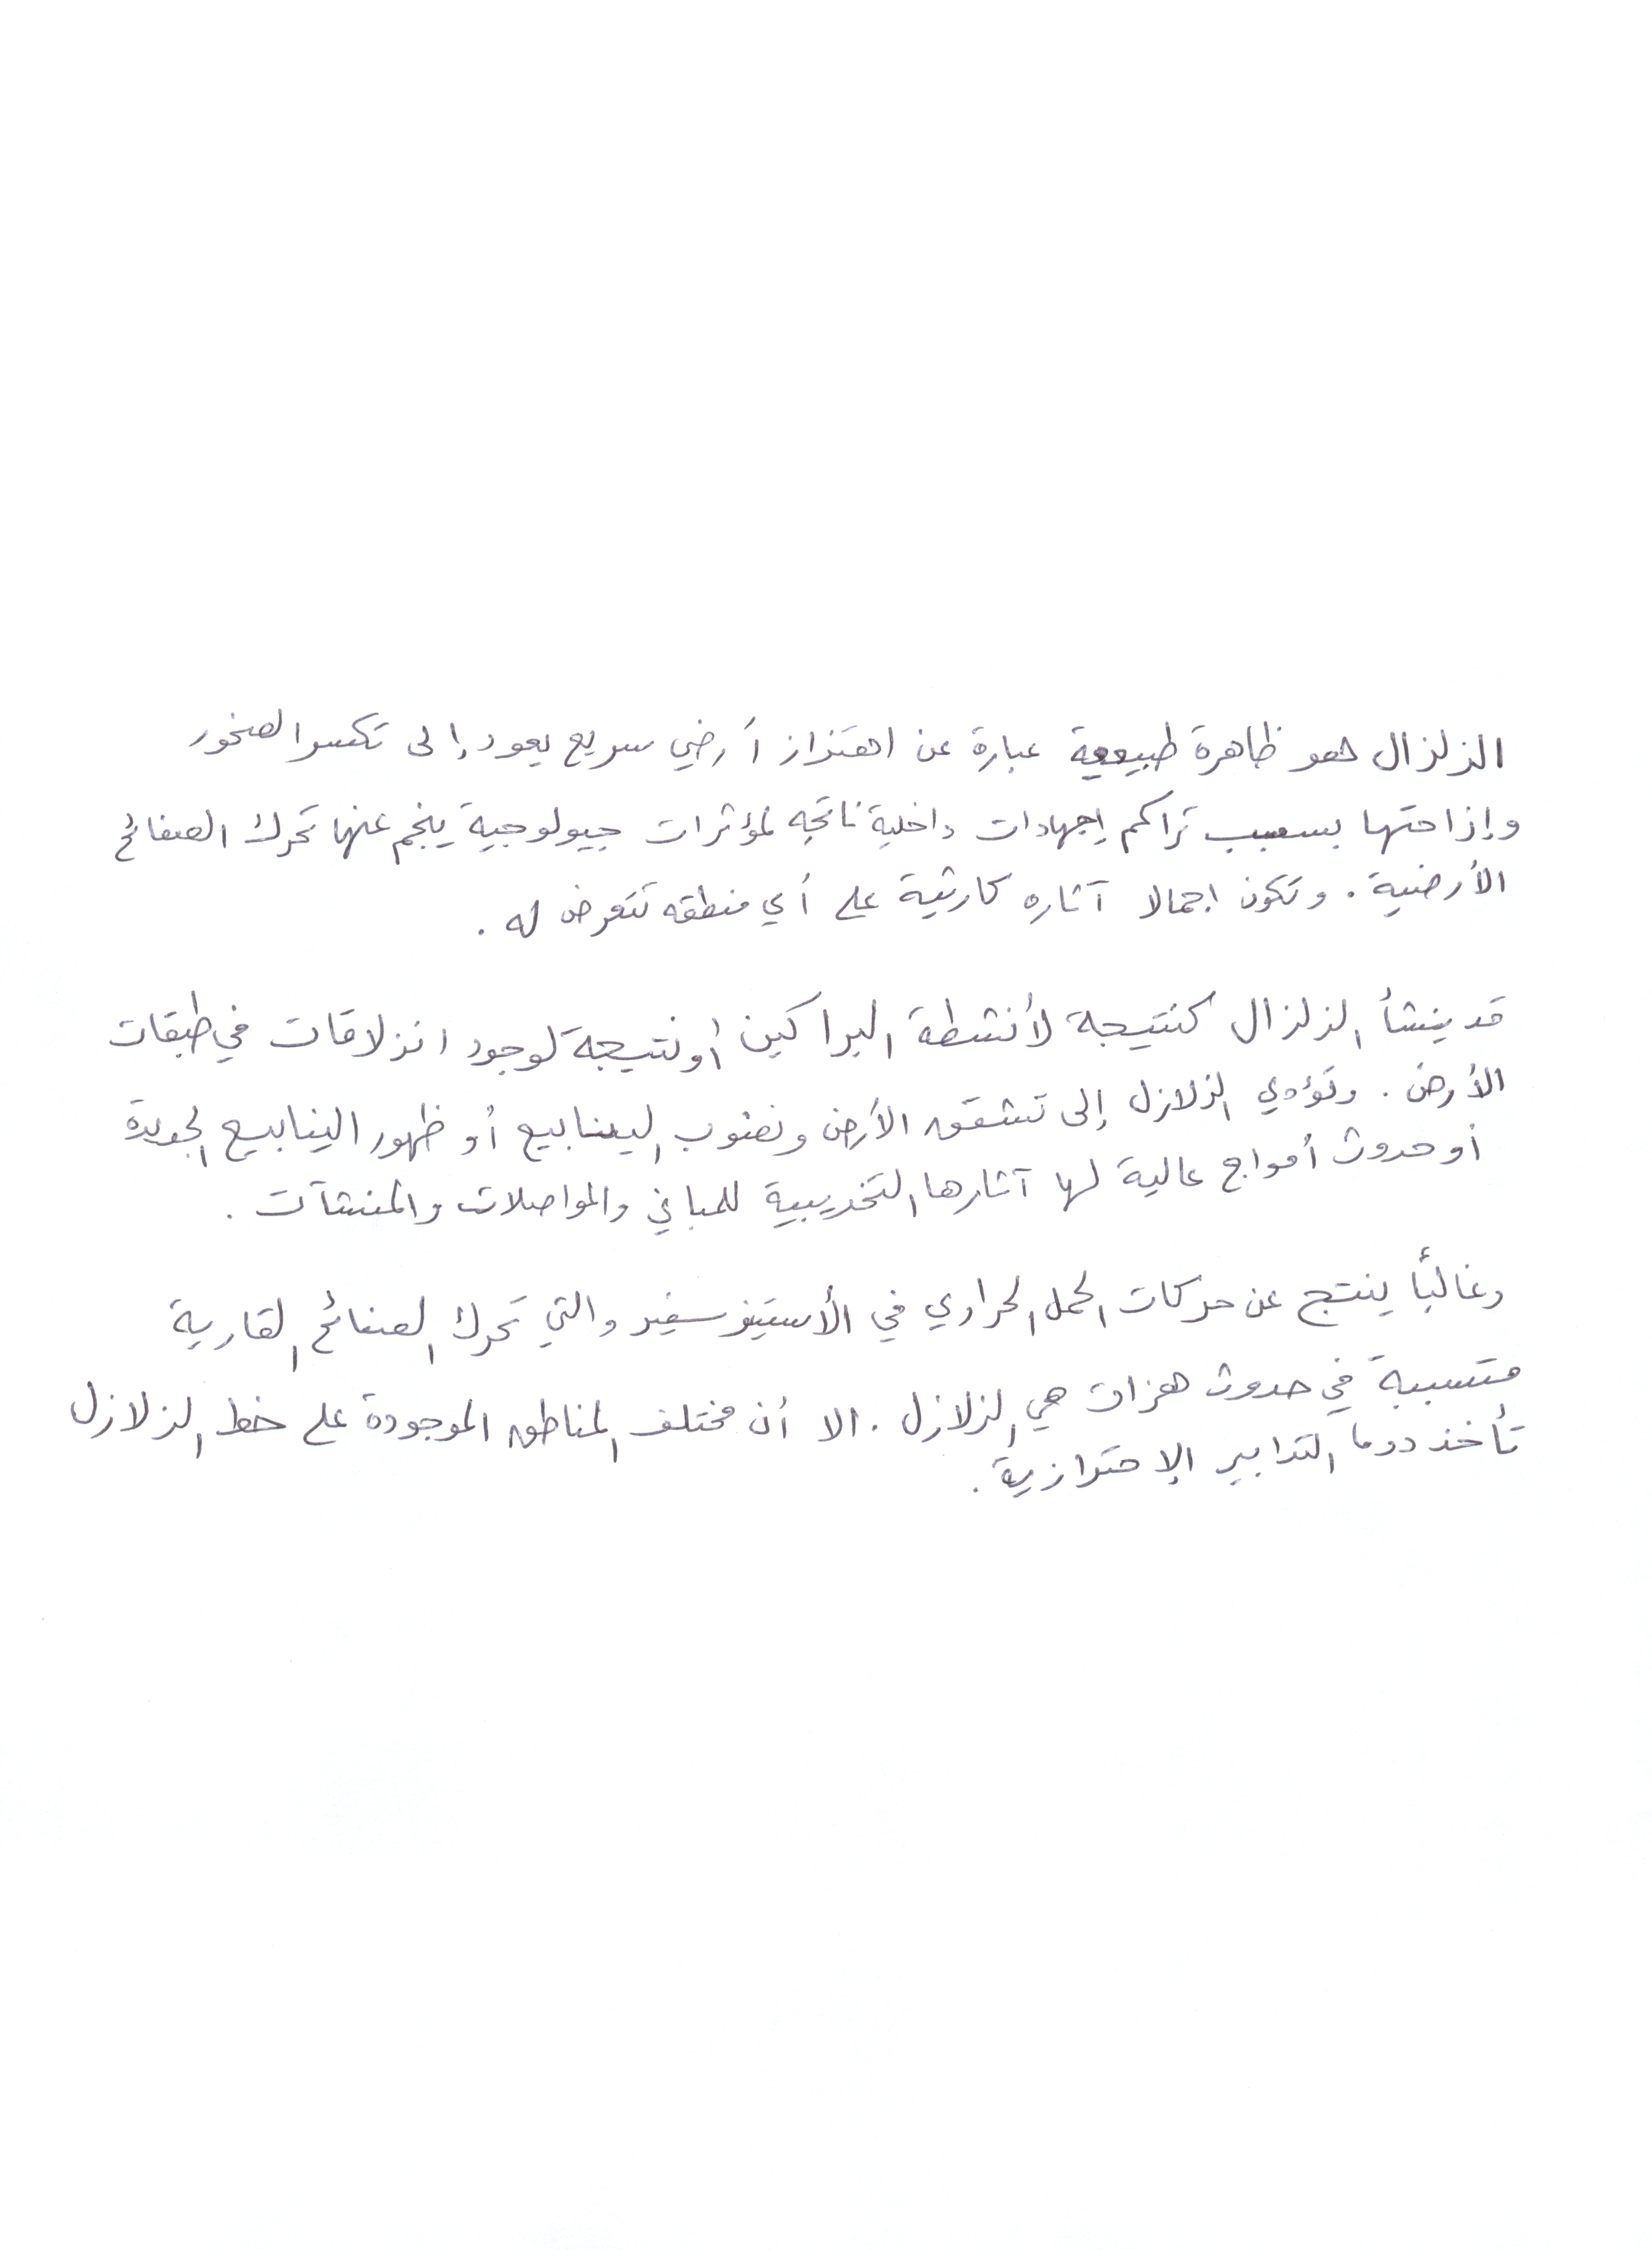 الزلزال هو ظاهرة طبيعية عبارة عن اهتزاز أرضي سريع يعود إلى تكسر الصخور
وإزاحتها بسبب تراكم إجهادات داخلية ناتجه لمؤثرات جيولوجية ينجم عنها تحرك الصفائح
الأرضية. وتكون اجمالا آثاره كارثية على أي منطقه تتعرض له.
قد ينشأ الزلزال كنتيجة لأنشطة البراكين أو نتيجة لوجود انزلاقات في طبقات
الأرض. وتؤدي الزلازل إلى تشقق الأرض ونضوب الينابيع أو ظهور الينابيع الجديدة
أو حدوث أمواج عالية لها آثارها التخريبية للمباني والمواصلات والمنشآت.
وغالبًا ينتج عن حركات الحمل الحراري في الأستينوسفير والتي تحرك الصفائح القارية
متسببة في حدوث هزات هي الزلازل. الا أن مختلف المناطق الموجودة على خط الزلازل
تأخذ دوما التدابير الإحترازية.